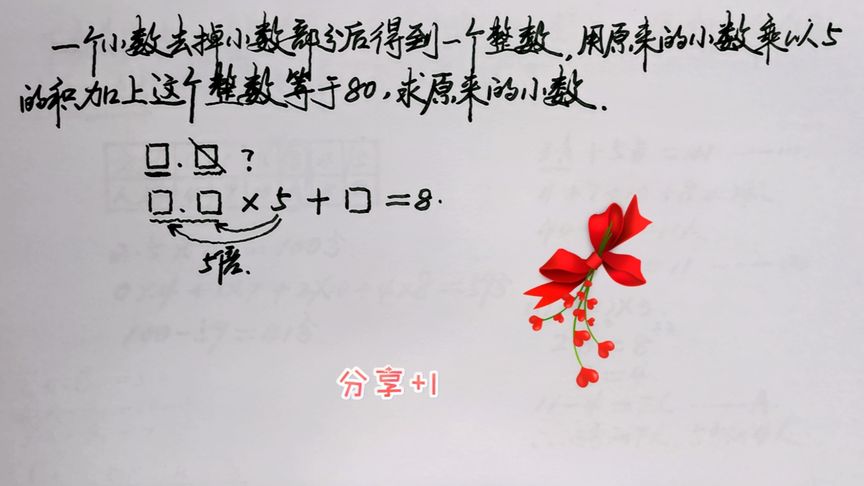 一个小数去掉小数部分后得到一个整数,用原来的小数乘以5
的积加上这个整数等于80,求原来的小数.
□.□ ?
□.□ × 5 + □ = 8.
5倍.
分享+1